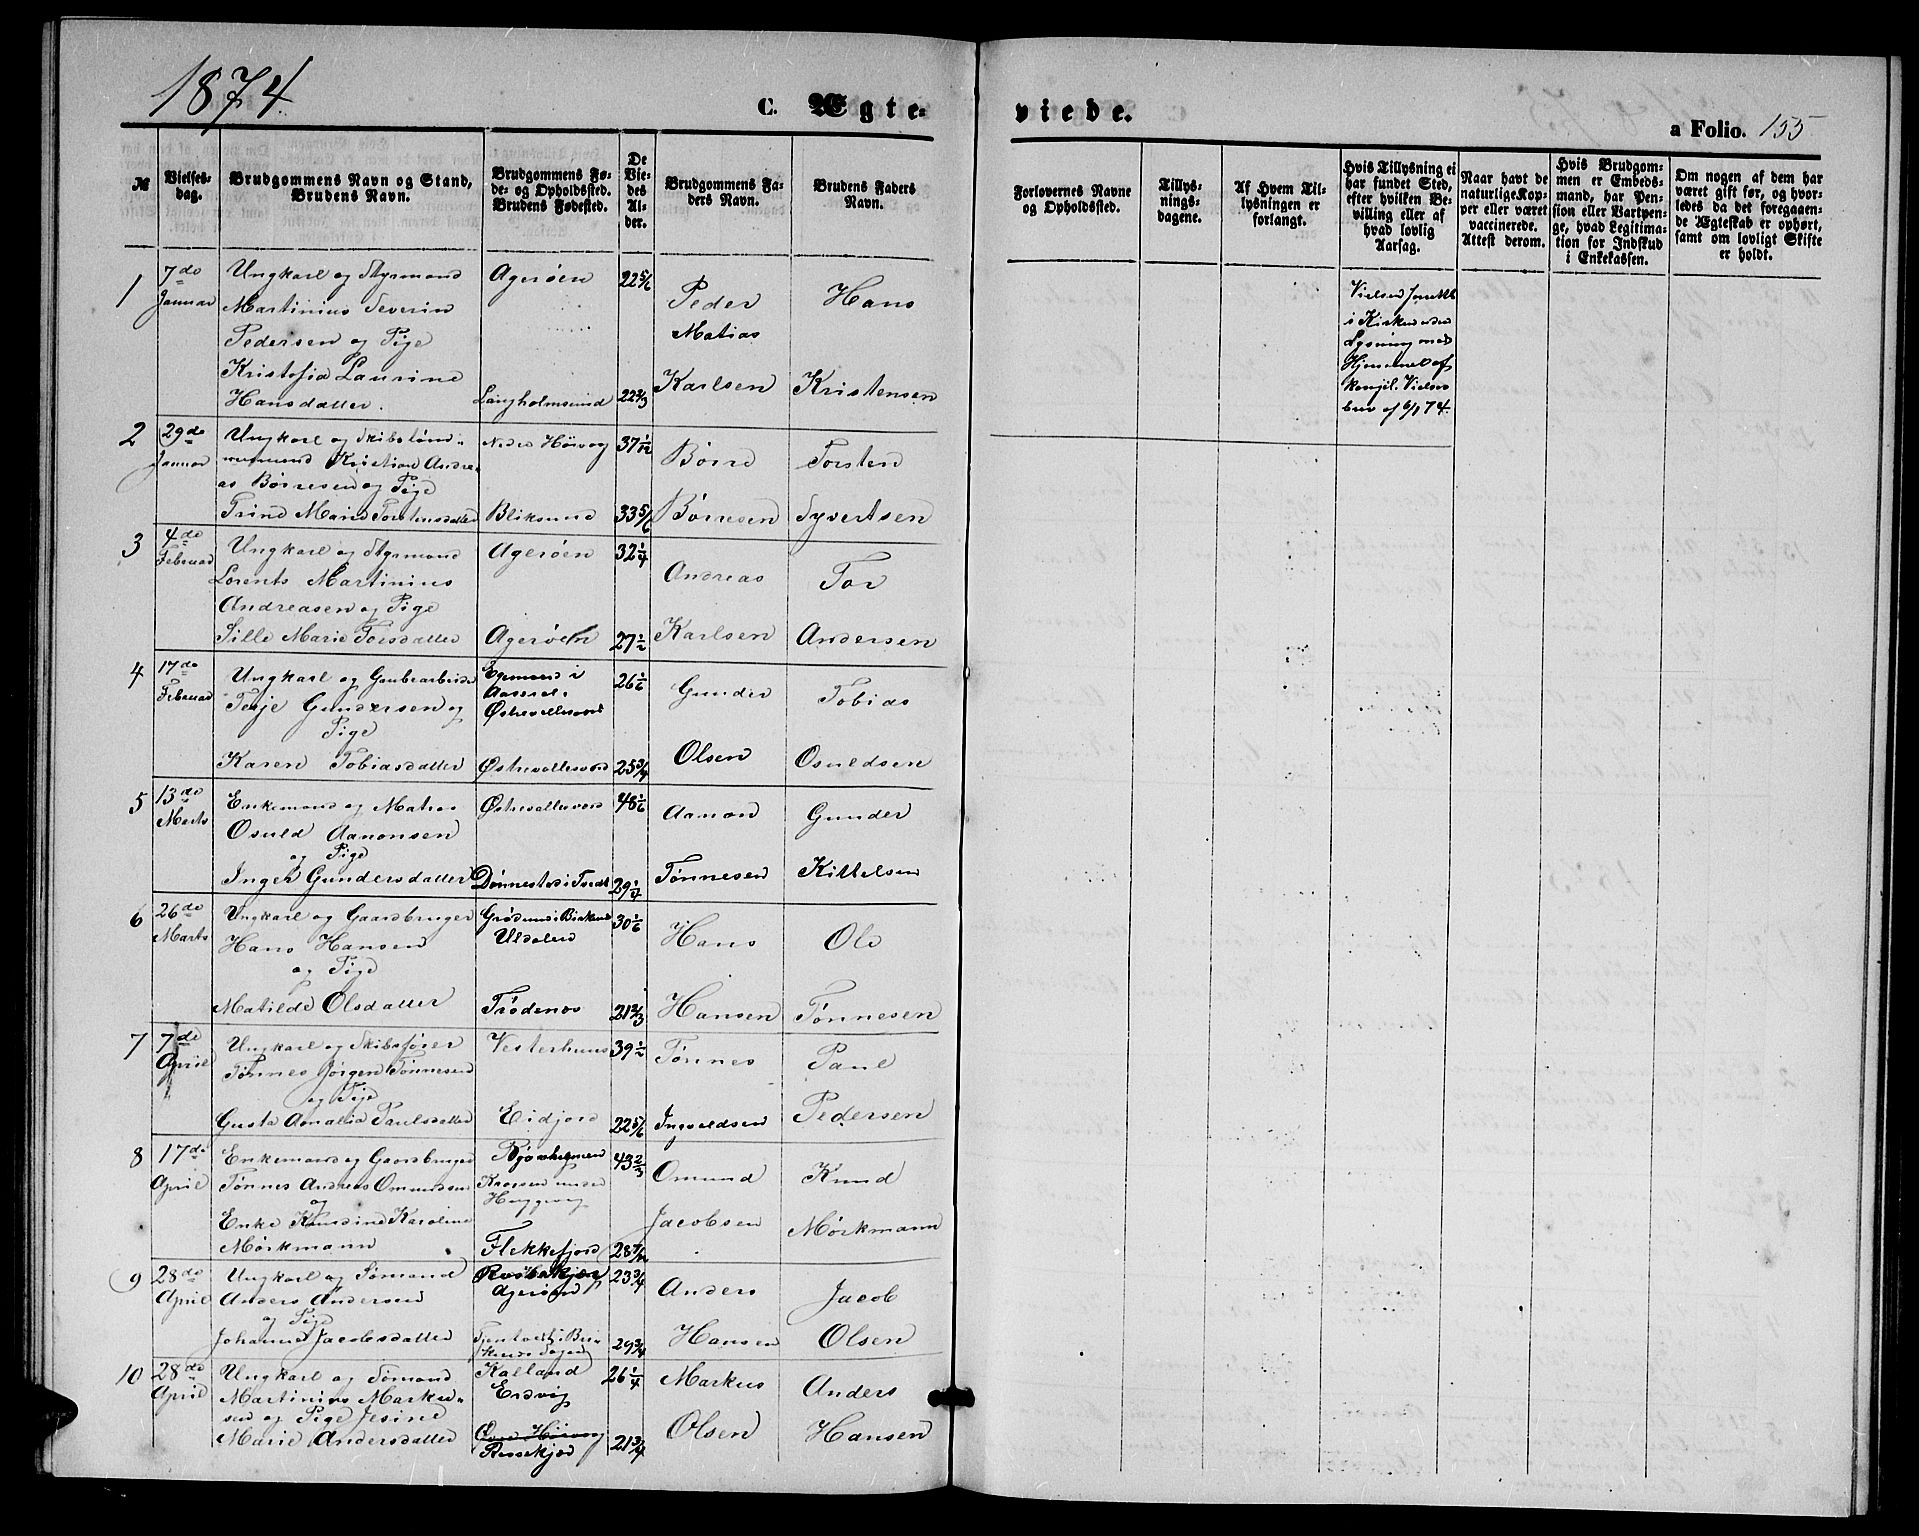 1874
C. Ægte-
viede.
a Folio. 155
№
Vielses-
dag.
Brudgommens Navn og Stand,
Brudens Navn.
Brudgommens Fø-
de- og Opholdssted.
Brudens Fødested.
De
Vie-
des
Al-
der.
Brudgommens Fa-
ders Navn.
Brudens Faders
Navn.
Forlovernes Navne
og Opholdssted.
Tillys-
nings-
dagene.
Af Hvem Til-
lysningen er
forlangt.
Hvis Tillysning ei
har fundet Sted,
efter hvilken Be-
villing eller af
hvad lovlig
Aarsag.
Naar havt de
naturlige Kop-
per eller været
vaccinerede.
Attest derom.
Hvis Brudgom-
men er Embeds-
mand, har Pen-
sion eller Vartpen-
ge, hvad Legitima-
tion for Indskud
i Enkekassen.
Om nogen af dem har
været gift før, og hvor-
ledes da det foregaaen-
de Ægteskab er ophørt,
samt om lovligt Skifte
er holdt.
1
7de
Januar
Ungkarl og Styrmand
Martinius Severin
Pedersen og Pige
Kristofia Laurine
Hansdatter.
Agerøen
Langholmsund
22 5/6
22 2/3
Peder
Matias
Karlsen
Hans
Kristensen
Vielsen forrettet
i Kirken uden
Lysning med
Hjemmel af
kongl. Vielses
brev af 6/1 74.
2
29de
Januar
Ungkarl og Skibstøm-
mermand Kristian Andre-
as Børresen og Pige
Trine Marie Torstensdatter
Nedre Høivog
Bliksund
37 1/12
33 5/6
Børre
Børresen
Torsten
Syvertsen
3
4de
Februar
Ungkarl og Styrmand
Lorents Martinius
Andreasen og Pige
Sille Marie Torsdatter
Agerøen
Agerøen
32 1/4
27 1/2
Andreas
Karlsen
Tor
Andersen
4
17de
Februar
Ungkarl og Grubearbeider
Terje Gundersen og
Pige
Karen Tobiasdatter
Østrevallesverd
Østrevallesverd
26 1/6
25 3/4
Gunder
Olsen
Tobias
Osuldsen
5
13de
Marts
Enkemand og Matros
Osuld Aanonsen
og Pige
Inger Gundersdatter
Østrevallesverd
Dønnestad i Tveit
48 1/6
29 1/4
Aanon
Tønnesen
Gunder
Kittelsen
6
26de
Marts
Ungkarl og Gaardbruger
Hans Hansen
og Pige
Matilde Olsdatter
Trødenes
30 1/6
21 2/3
Hans
Hansen
Ole
Tønnesen
7
7de
April
Ungkarl og Skibsfører
Tønnes Jørgen Tønnesen
og Pige
Gusta Amalia Paulsdatter
Vesterhuus
Eidjord
39 1/2
22 5/6
Tønnes
Ingvaldsen
Paul
Pedersen
8
17de
April
Enkemand og Gaardbruger
Tønnes Andreas Omundsen
og
Enke Knudine Karoline
Mørkmann
Flekkefjord
43 2/3
28 7/12
Omund
Jacobsen
Knud
Mørkmann
9
28de
April
Ungkarl og Sømand
Anders Andersen
og Pige
Johanne Jacobsdatter
Agerøen
23 3/4
29 3/4
Anders
Hansen
Jacob
Olsen
10
28de
April
Ungkarl og Sømand
Martinius Marku-
sen og Pige Jesine
Marie Andersdatter
Kalland
Eidvig
Øvre Høivog
Rossekjær
26 1/4
21 3/4
Markus
Olsen
Anders
Hansen